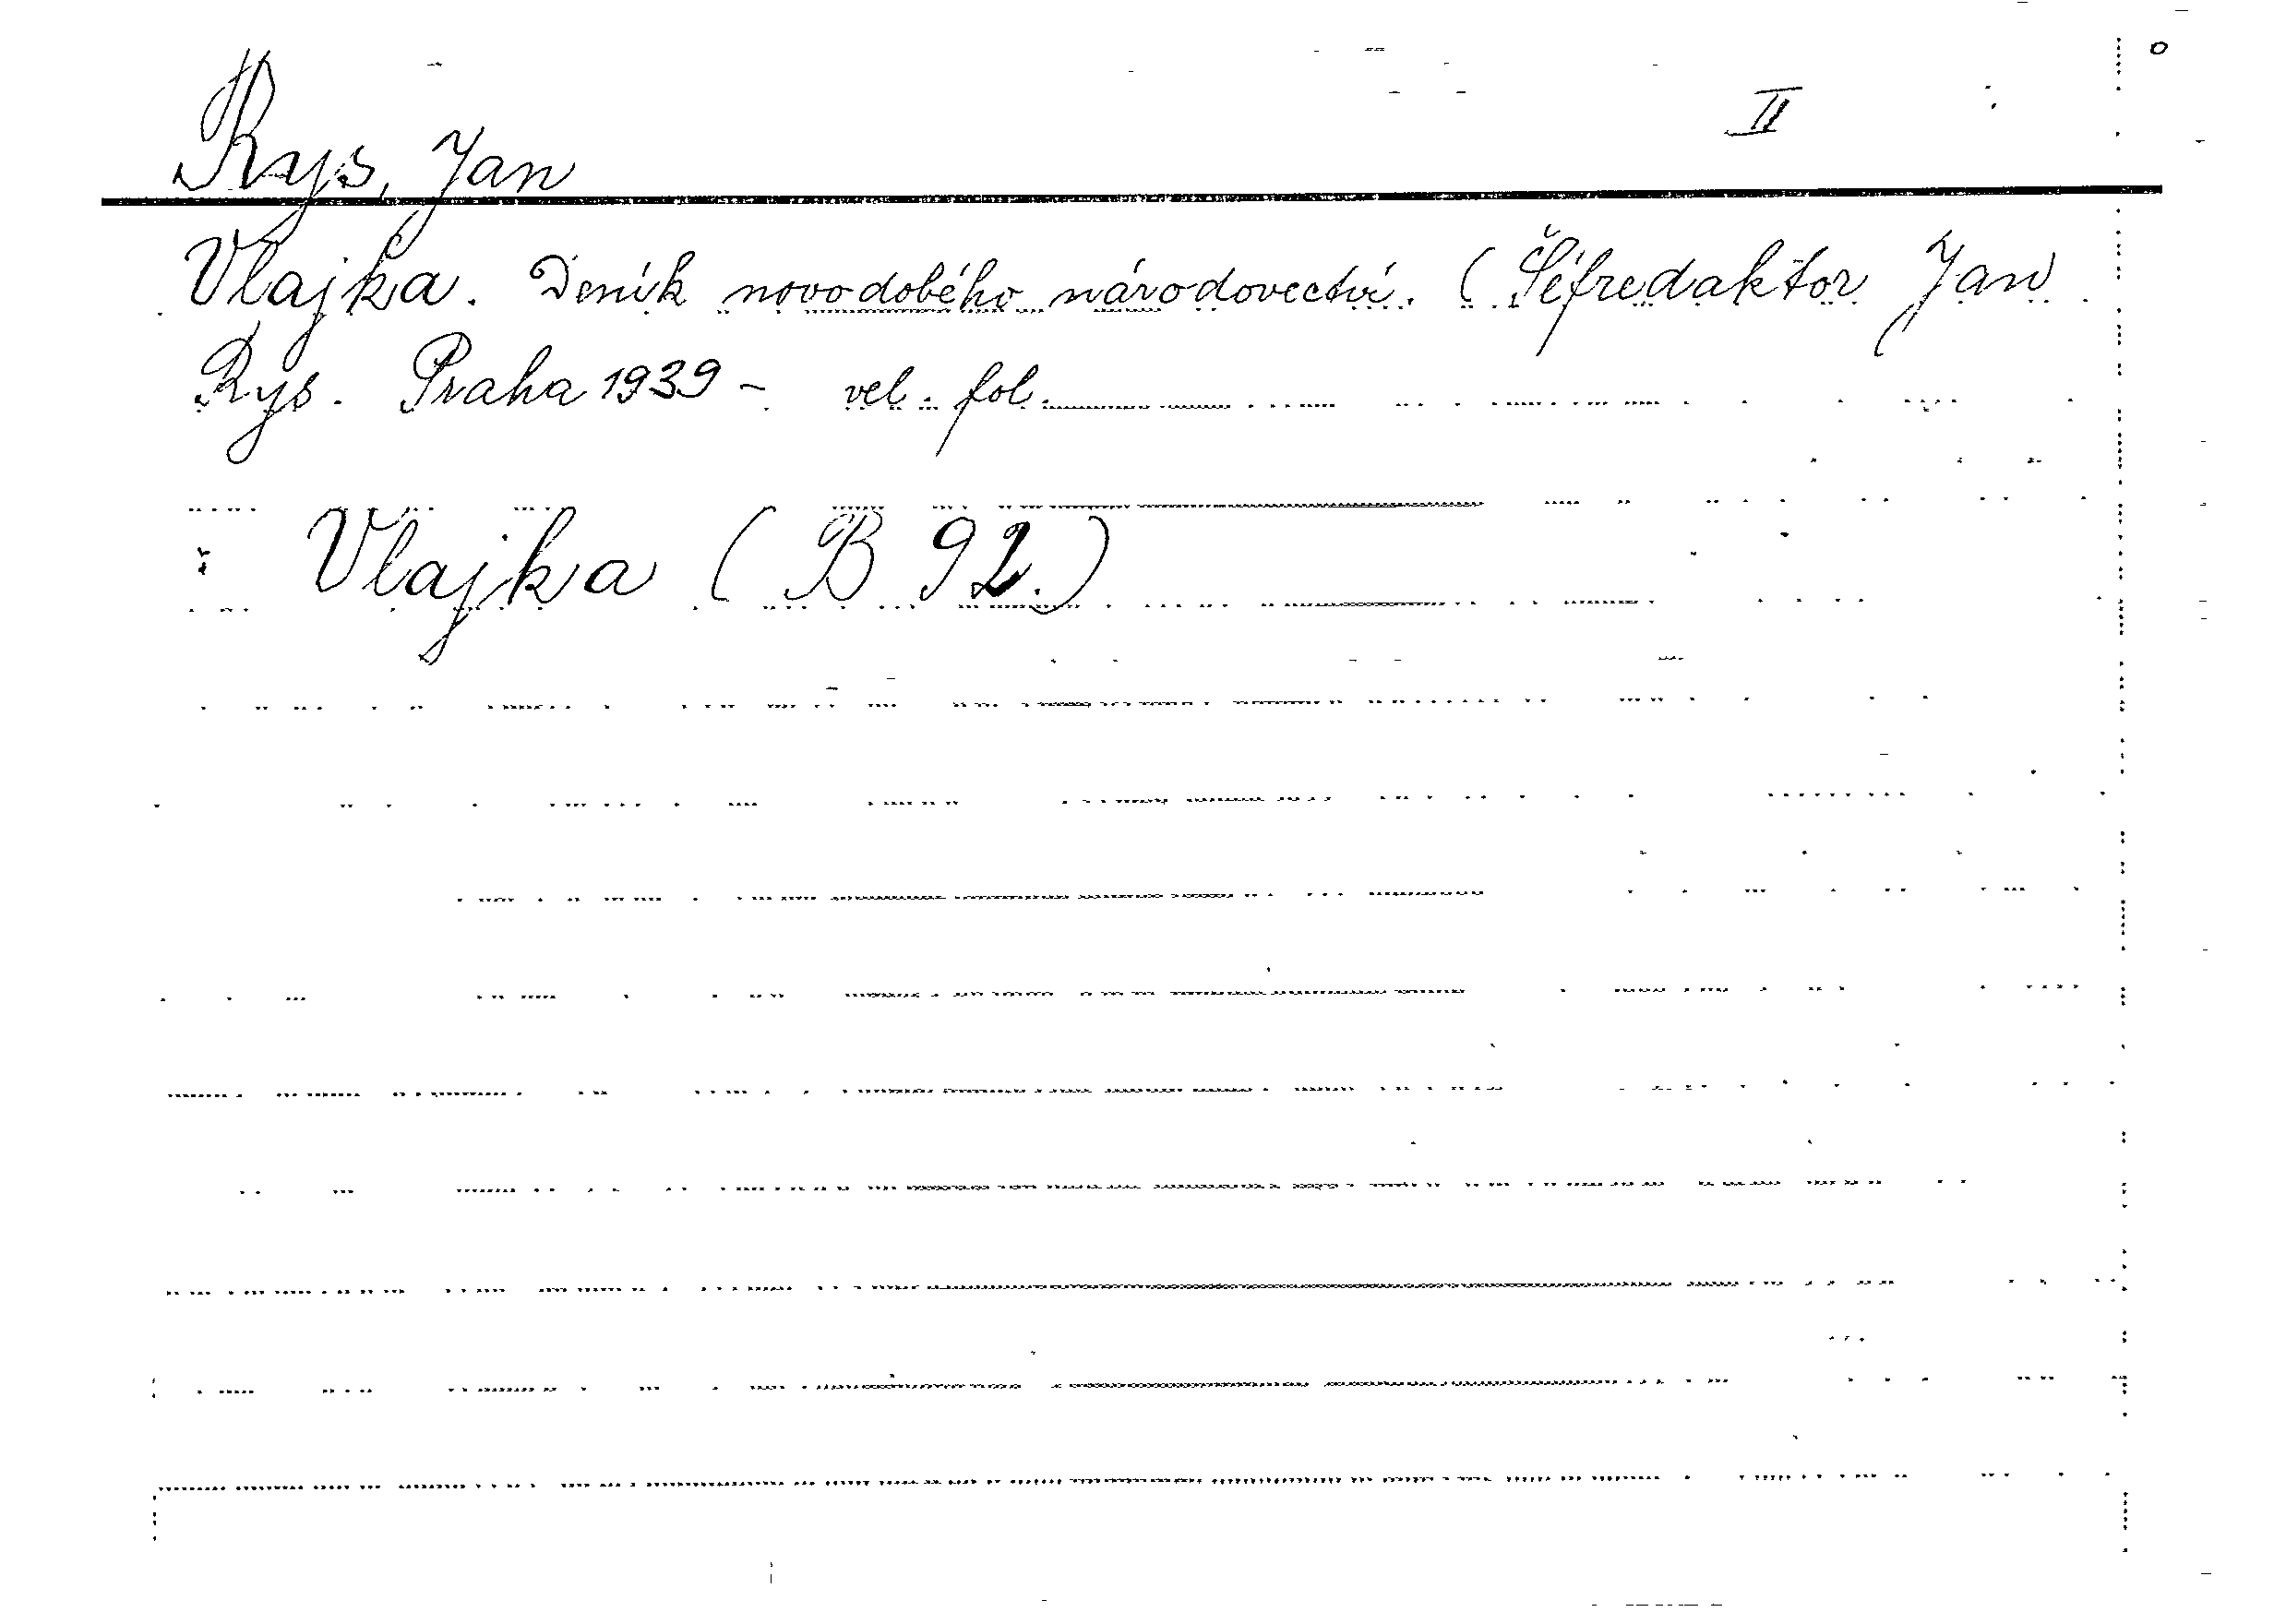 II
Rys, Jan
Vlajka. Deník novodobého národovectví. (Šéfredaktor Jan
Rys. Praha 1939 - vel. fol.
Vlajka (B 92.)